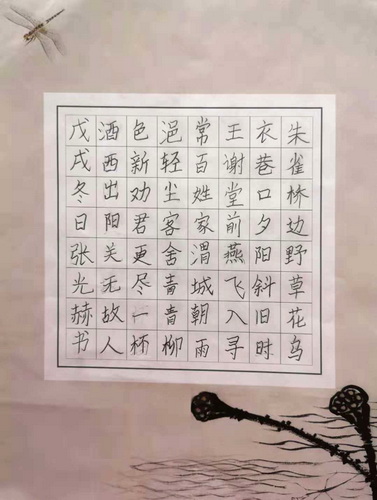 朱雀桥边野草花乌
衣巷口夕阳斜旧时
王谢堂前燕飞入寻
常百姓家渭城朝雨
浥轻尘客舍青青柳
色新劝君更尽一杯
酒西出阳关无故人
戊戌冬日张光赫书